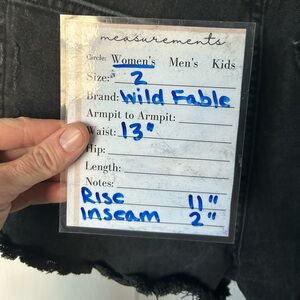 measurements
Circle: Women's Men's Kids
Size: 2
Brand: Wild Fable
Armpit to Armpit:
Waist: 13"
Hip:
Length:
Notes:
Rise 11"
Inseam 2"